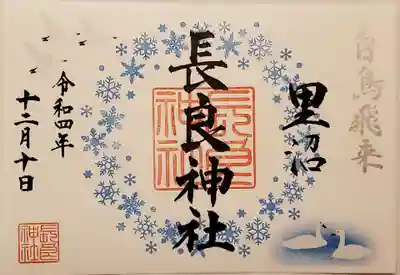 白鳥飛来
里沼
長良神社
令和四年
十二月十日
長良神社
長良神社